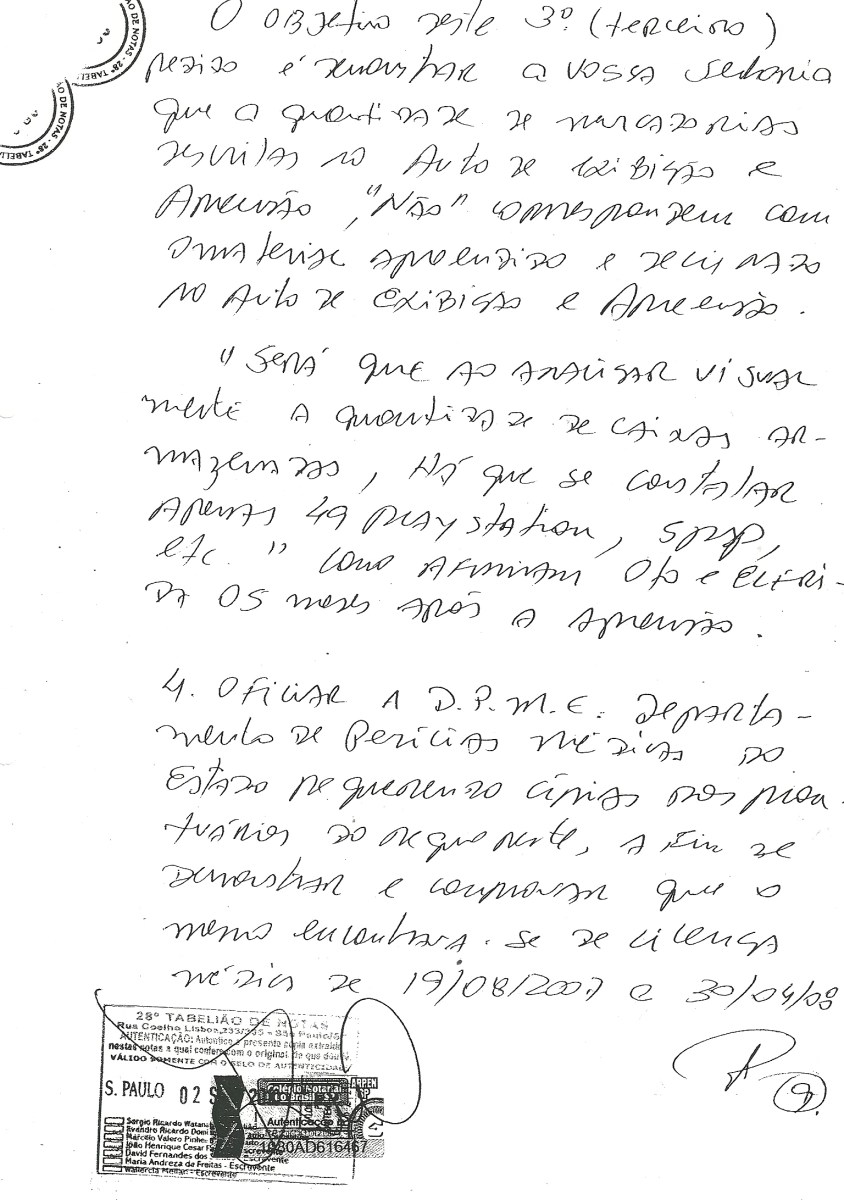 O objetivo deste 3º. (terceiro)
pedido é demonstrar a vossa
que a quantidade de mercadorias
descritas no Auto de Exibição e
Apreensão, "Não" correspondem com
o material apreendido e
no Auto de Exibição e Apreensão.
"Será que ao analisar visual
mente a quantidade de caixas ar-
mazenadas, Há que se constatar
apenas 49 playstation,
etc." como afirmam
05 meses após a apreensão.
4. Oficiar a D.P.M.E. Departa-
mento de Perícias Médicas do
Estado requerendo cópias dos pron
tuários do requerente, a fim de
demonstrar e comprovar que o
mesmo encontrava-se de licença
médica de 19/08/2007 a 30/04/08
9.
ÃO DE NOTAS - 28º TABELI
ÃO DE NOTAS - 28º TABELI
28º TABELIÃO DE NOTAS
Rua Coelho Lisboa, - São Paulo/S
AUTENTICAÇÃO: Autentico a presente cópia extraída
nestas notas a qual confere com o original de que dou fé.
VÁLIDO SOMENTE COM O SELO DE AUTENTICIDADE
S. PAULO 02
Colégio Notarial
do Brasil SP
ARPEN
SP
Autenticação
1080AD616467
Sergio Ricardo
Evandro Ricardo
Marcelo Valero
João Henrique Cesar
David Fernandes dos Escrevente
Maria Andreza de Freitas - Escrevente
- Escrevente